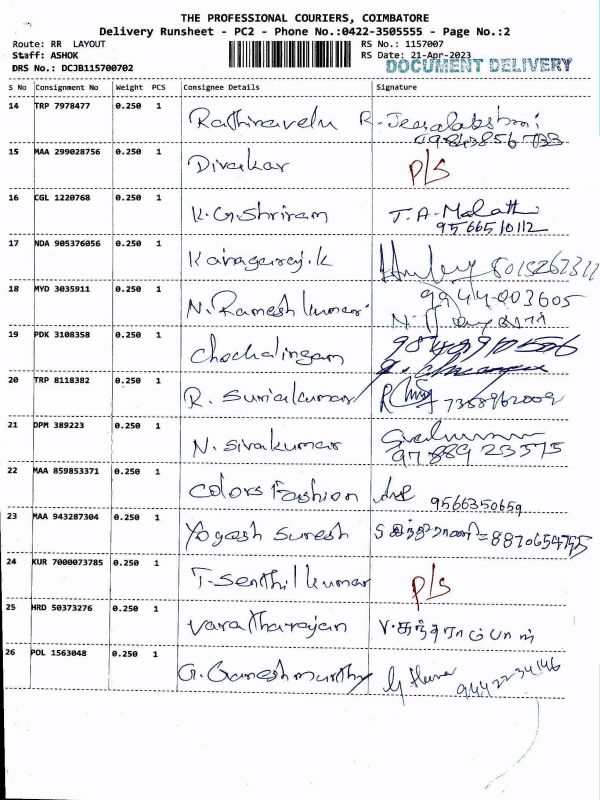 THE PROFESSIONAL COURIERS, COIMBATORE
Delivery Runsheet - PC2 - Phone No.:0422-3505555 - Page No.:2
Route: RR LAYOUT
RS No.: 1157007
Staff: ASHOK
RS Date: 21-Apr-2023
DRS No.: DCJB115700702
DOCUMENT DELIVERY
S No Consignment No Weight PCS Consignee Details Signature
14 TRP 7978477 0.250 1
Rathinavelu R. Jeyalakshmi
15 MAA 299028756 0.250 1
Divakar P/S
16 CGL 1220768 0.250 1
K.G.Shriram T.A-Malathi
9566510112
17 NDA 905376056 0.250 1
Kanagaraj.K
18 MYD 3035911 0.250 1
N.Ramesh kumar 9944-003605
19 PDK 3108358 0.250 1
Chochalingam
20 TRP 8118382 0.250 1
R. Suriakumar 7368962009
21 DPM 389223 0.250 1
N. sivakumar
97889 23575
22 MAA 859853371 0.250 1
Colors Fashion 9566350659
23 MAA 943287304 0.250 1
Yogash Suresh 8870654795
24 KUR 7000073785 0.250 1
T-Senthil kumar P/S
25 HRD 50373276 0.250 1
Varatharajan
26 POL 1563048 0.250 1
G. Ganeshmurthy 9442234146